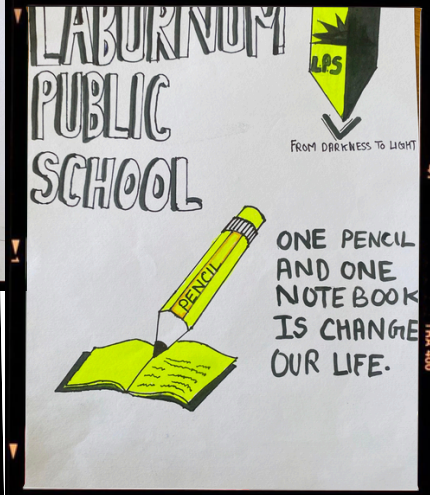 LABURNUM
PUBLIC
SCHOOL
LPS
FROM DARKNESS TO LIGHT
PENCIL
ONE PENCIL
AND ONE
NOTEBOOK
IS CHANGE
OUR LIFE.